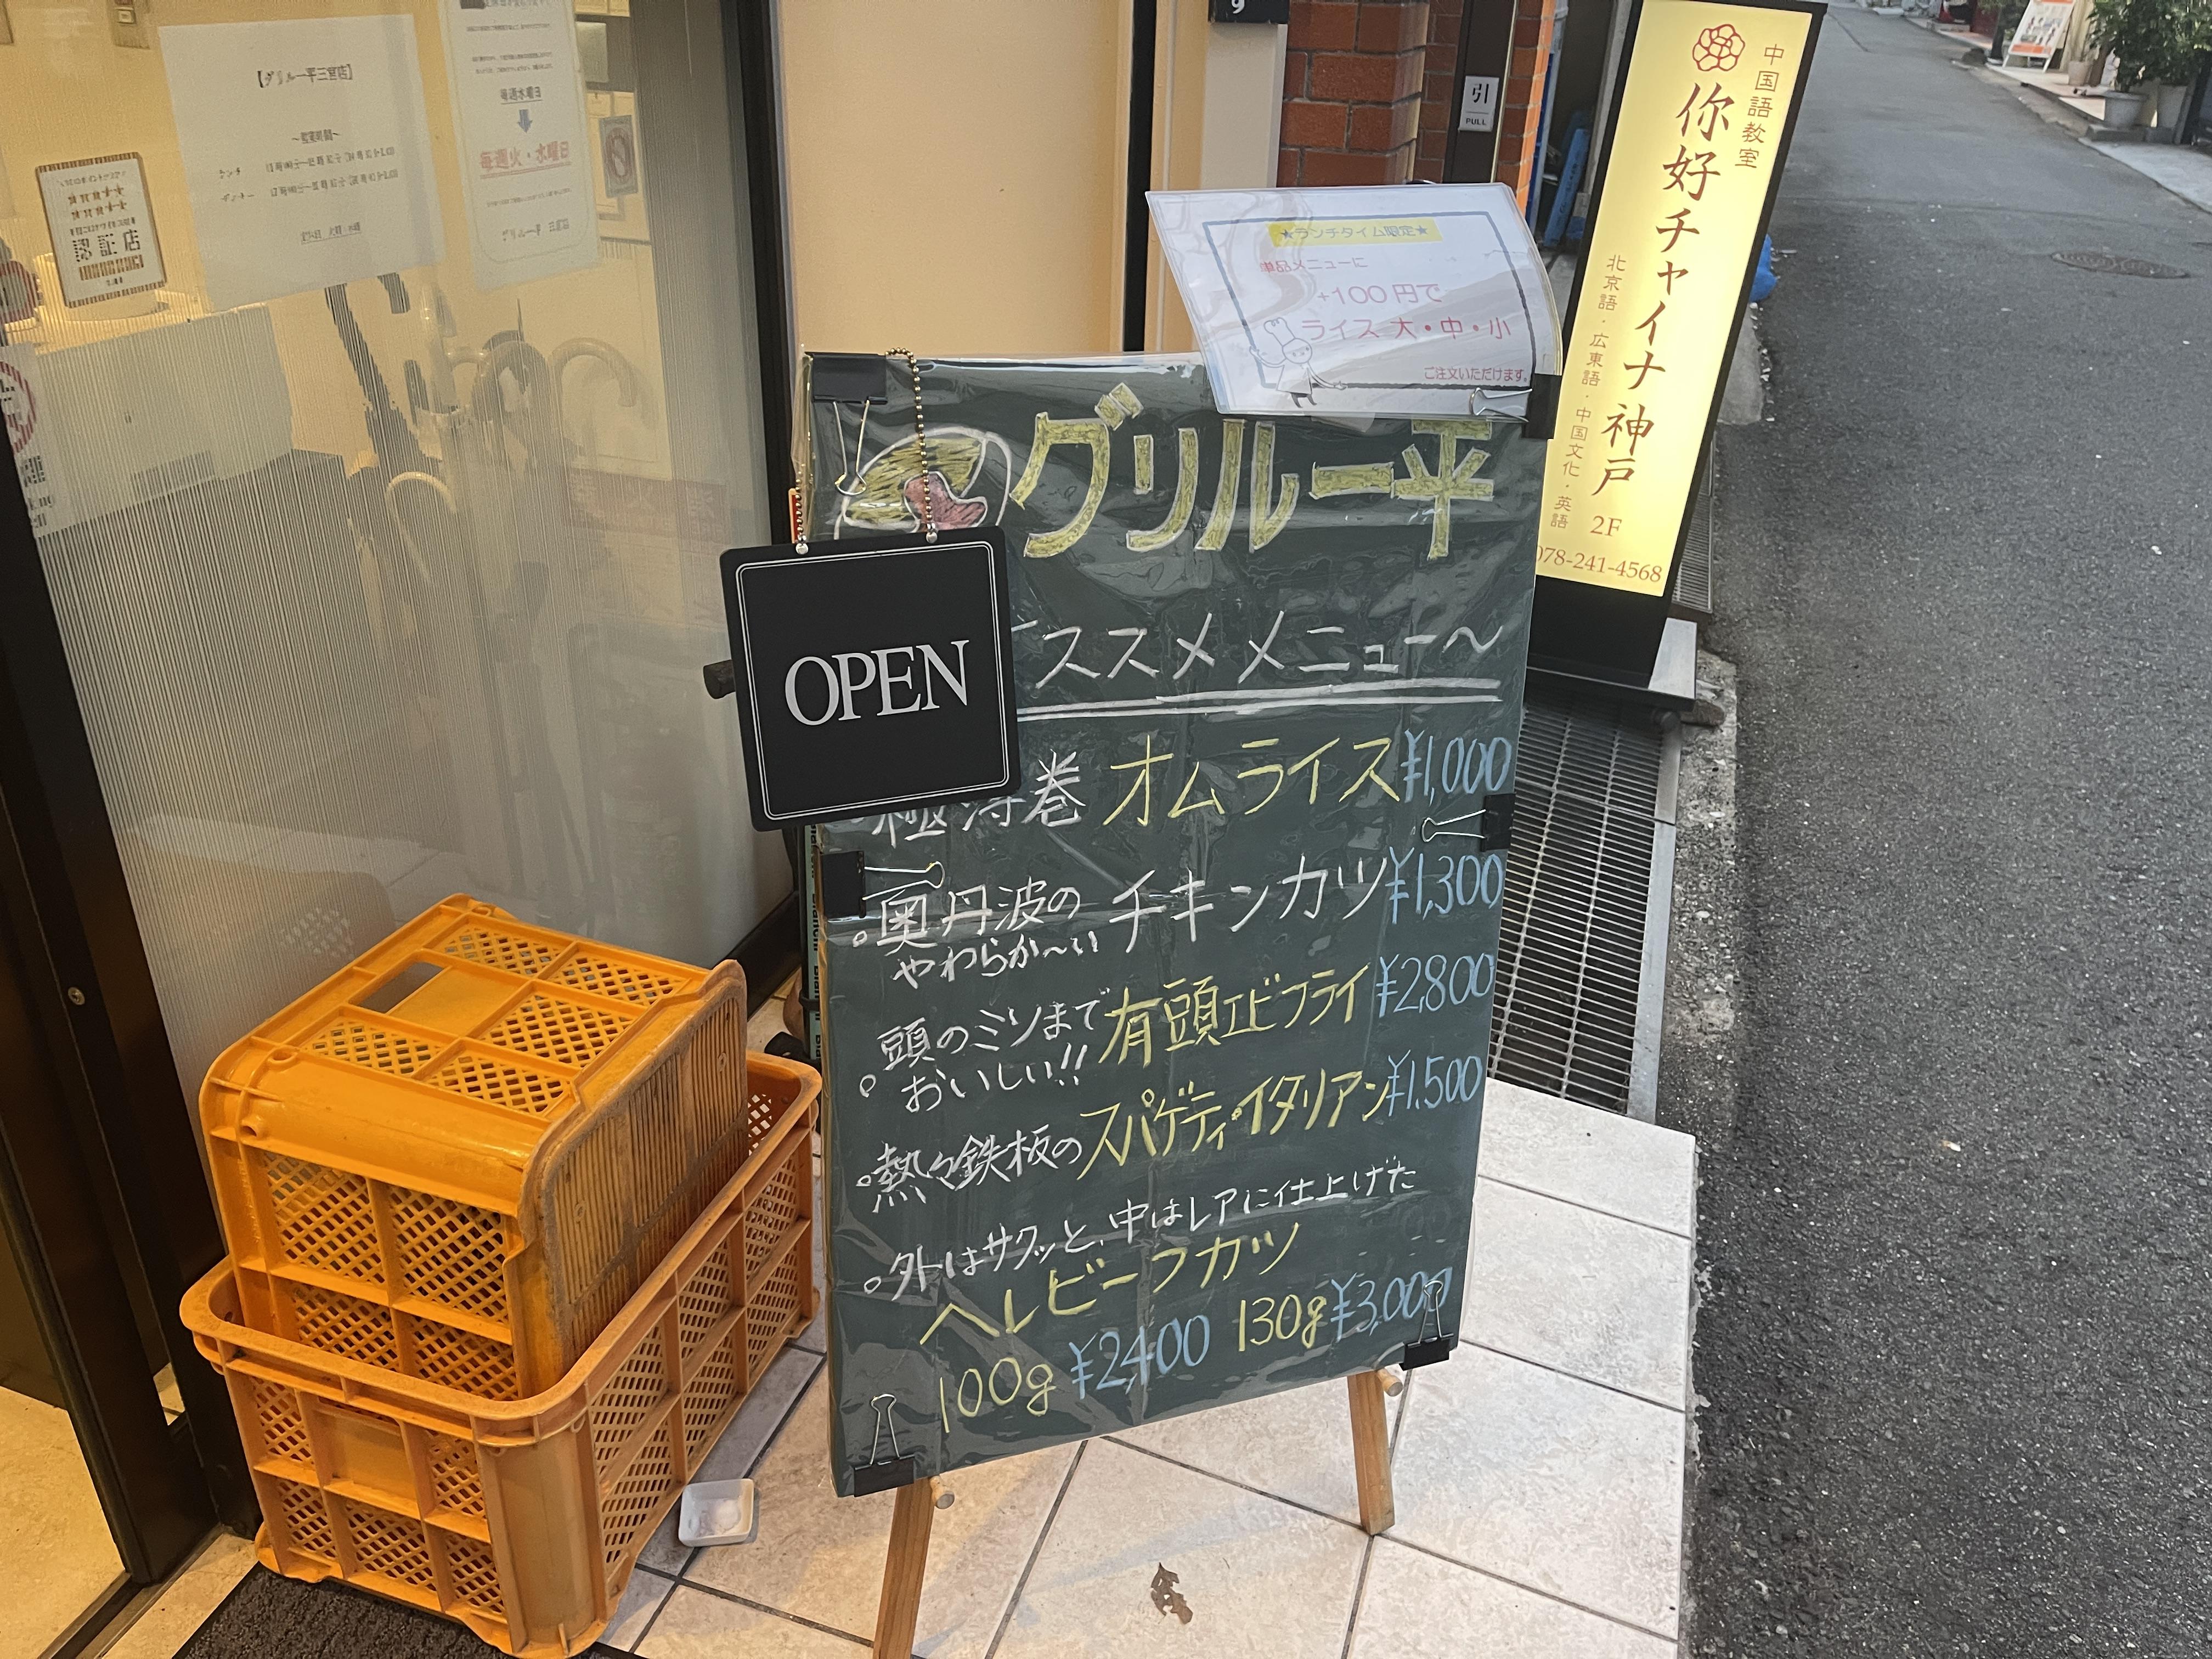 【グリル一平三宮店】
～営業時間～
ランチ
ディナー
定休日 火曜・水曜
毎週水曜日
毎週火・水曜日
グリル一平 三宮店
認証店
引
PULL
★ランチタイム限定★
単品メニューに
+100円で
ライス 大・中・小
ご注文いただけます。
グリル一平
ススメメニュー～
OPEN
極薄巻 オムライス ¥1,000
奥丹波の
やわらか～い チキンカツ ¥1,300
頭のミソまで
おいしい!! 有頭エビフライ ¥2,800
熱々鉄板の スパゲティ・イタリアン ¥1,500
外はサクッと、中はレアに仕上げた
ヘレビーフカツ
100g ¥2,400 130g ¥3,000
中国語教室
你好チャイナ神戸
北京語・広東語・中国文化・英語
2F
078-241-4568